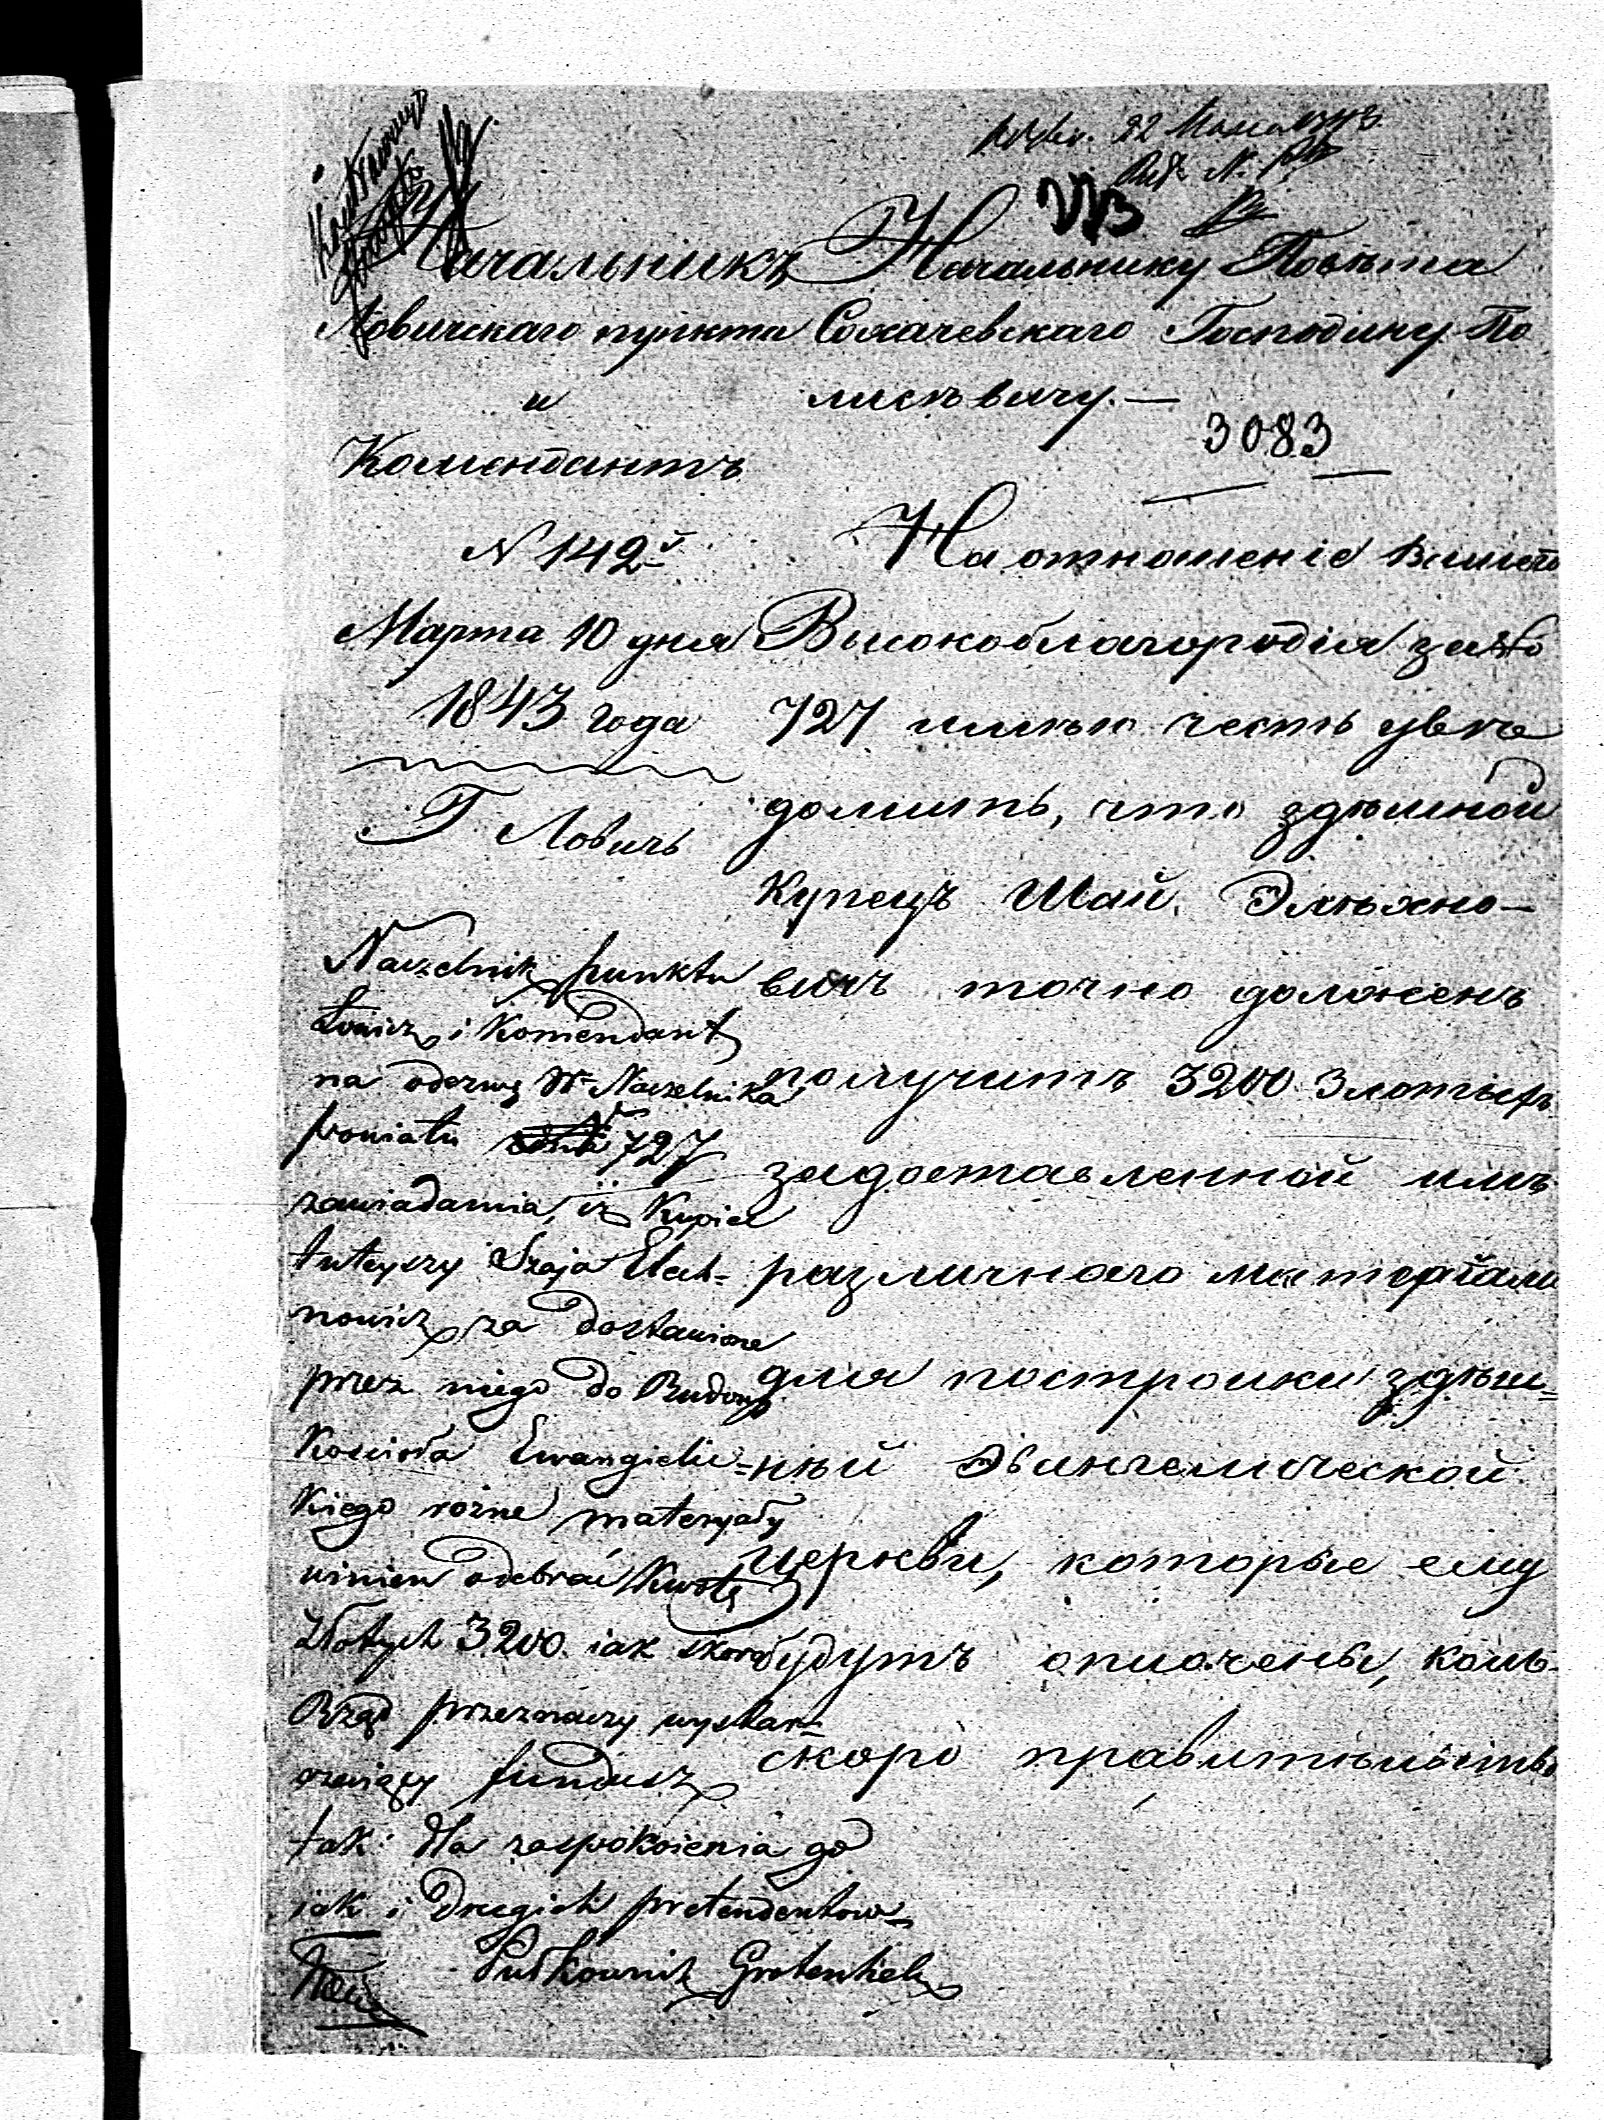 Начальникъ
Ловичскаго пункта
и
Комендантъ
N 142
Марта 10 дня
1843 года
Г Ловичь
Начальнику Повѣта
Сохачевскаго Господину По
лисѣвичу.—
3083
На отношеніе Вашего
Высокоблагородія за №
727 имѣю честь увѣ
домить, что здѣшной
купецъ Шай Эльяхно—
вичъ точно долженъ
получить 3200 Злотыхъ
задоставленной имъ
различнаго матеріали
для постройки здѣш=
ный Эвангелической
церкви, которые ему
будутъ оплочены, коль
скоро правительство
Naczelnik punktu
Łowicz i Komendant
na odezwę W. Naczelnika
powiatu N 727
zawiadamia, iż Kupiec
tuteyszy Szaja Elech=
nowicz za dostawione
przez niego do Budowy
Kościoła Ewangielic=
kiego rożne materyały
winien odebrać kwotę
Złotych 3200. iak skoro
Rząd przeznaczy wystar=
czaiący fundusz
tak dla zaspokoienia go
iak i drugich pretendentow
Pułkownik Grotenhielm